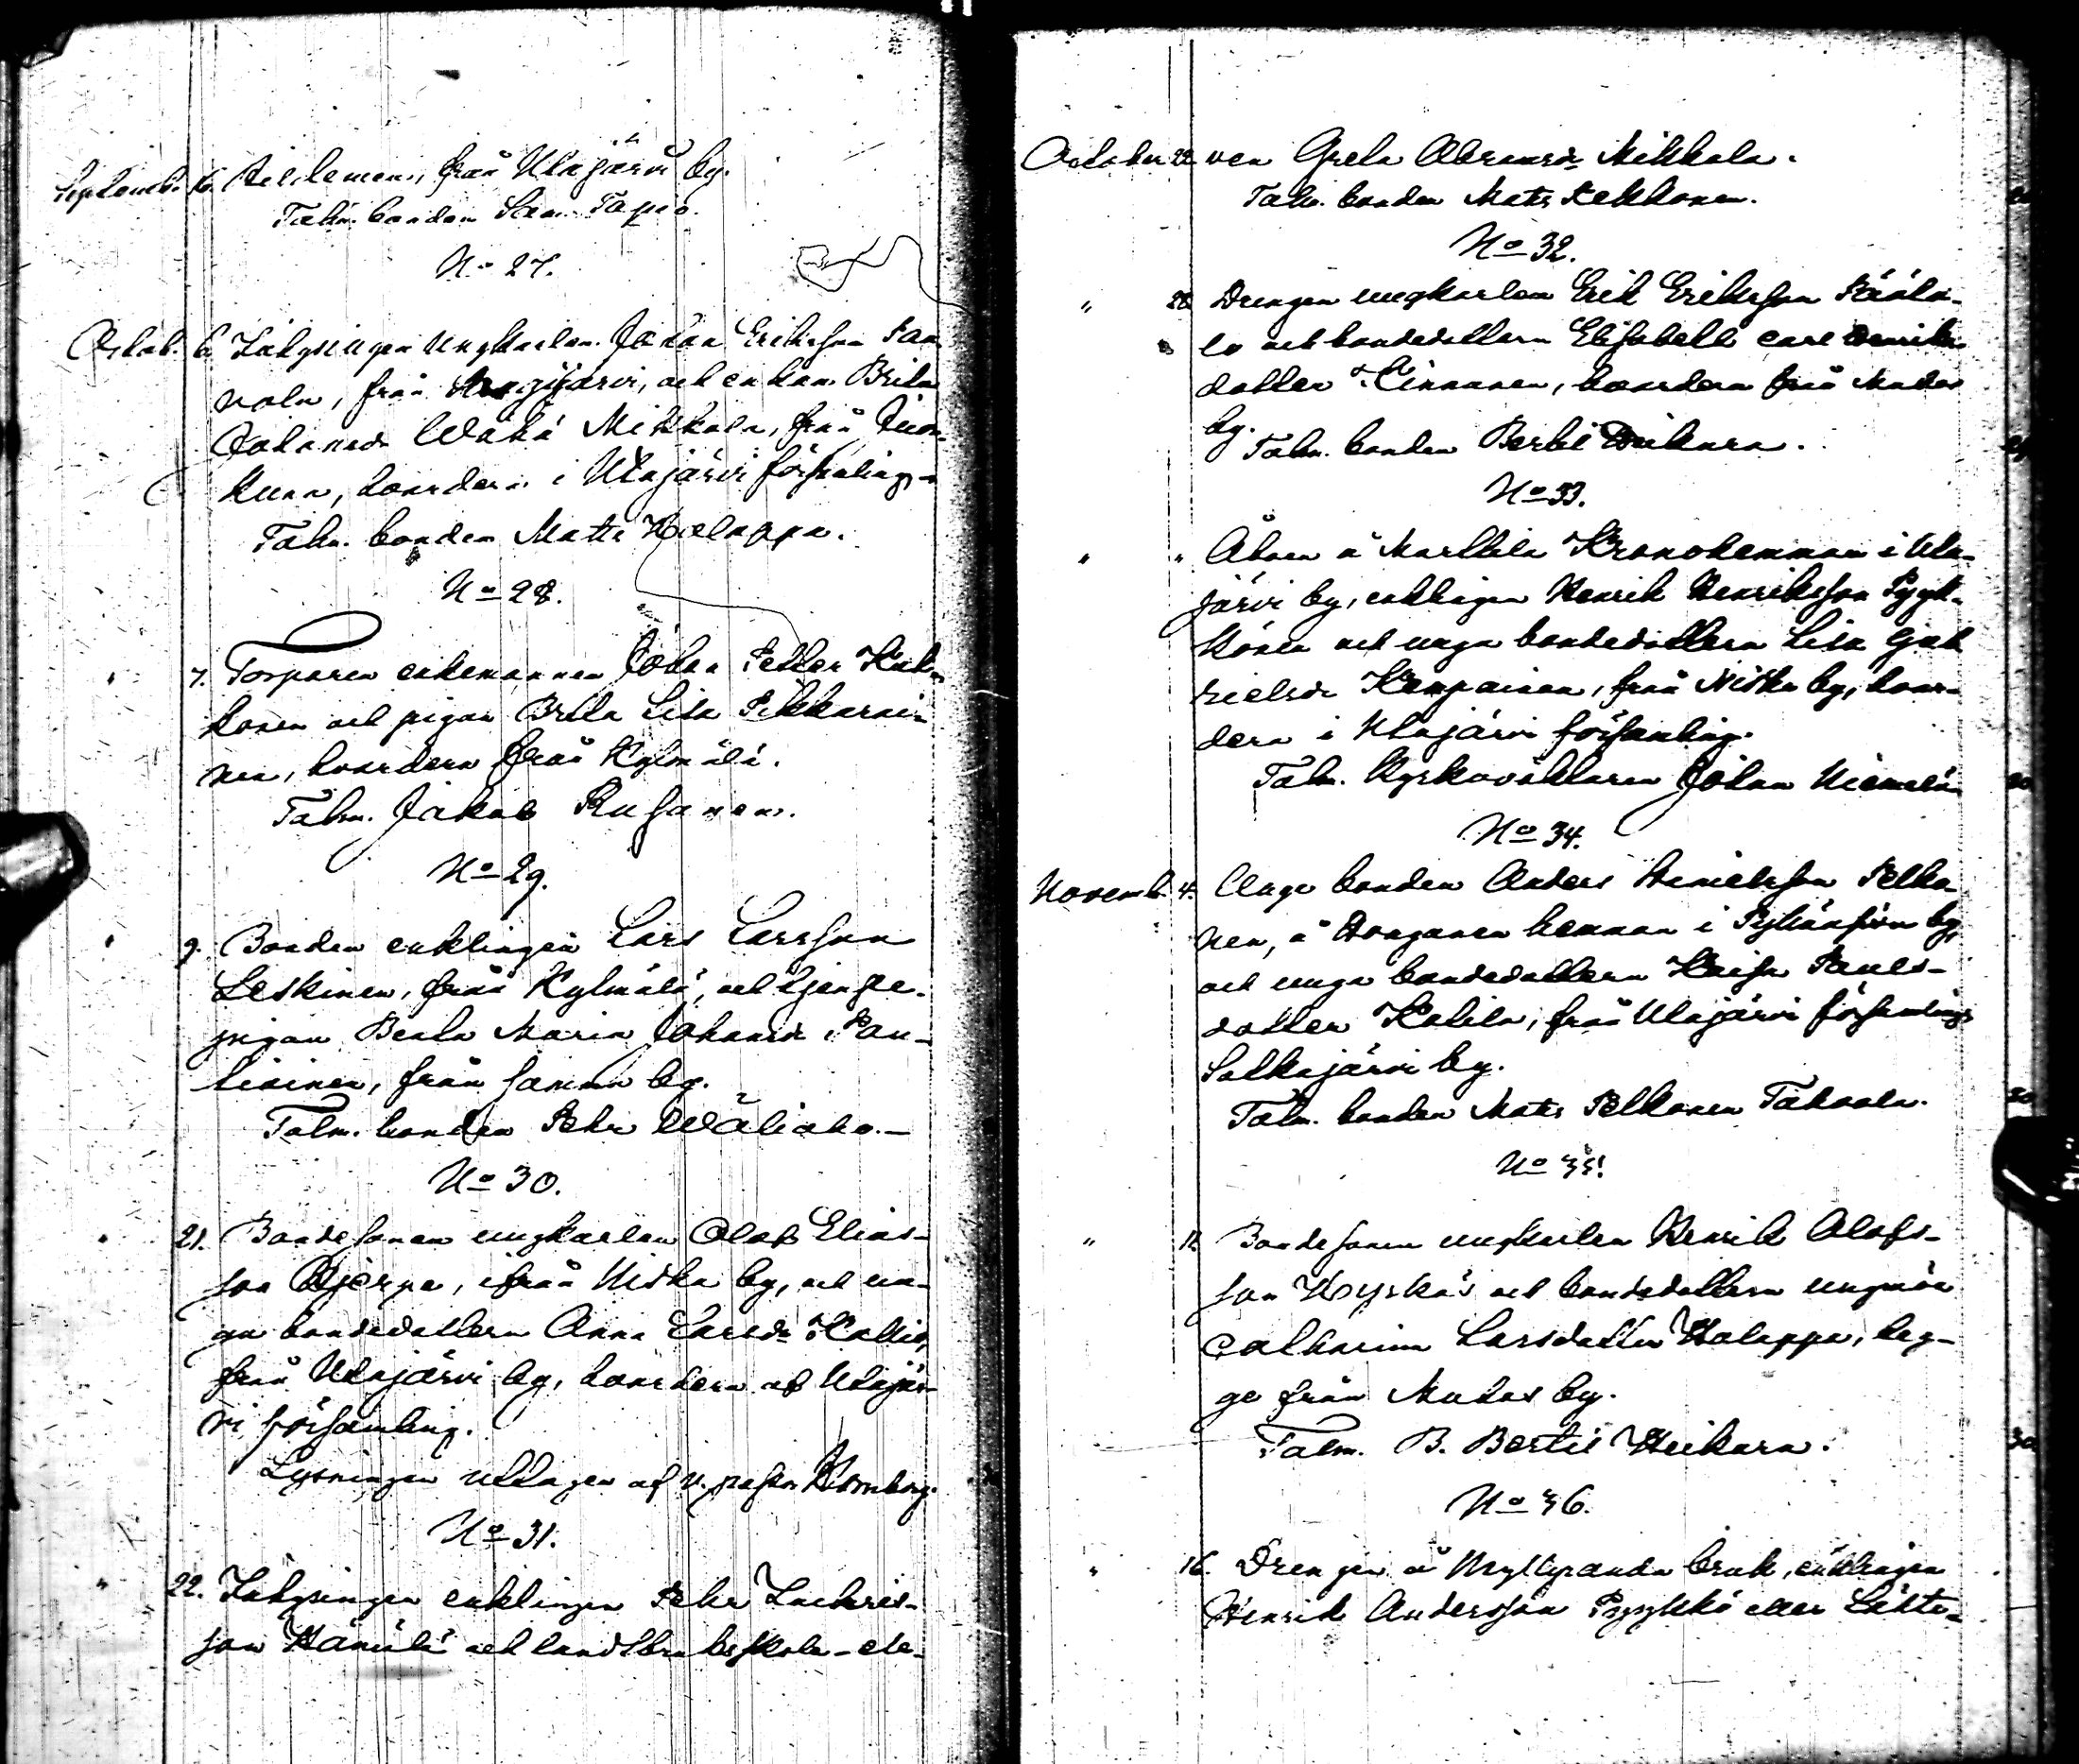 Septemb. 16. Heiskenen, från Utajärvi by.
Talm. bonden Sam. Tapio.
No 27.
Octob. 6. Inhysingen Ungkarlen Johan Eriksson Pan-
nola, från Ahmasjärvi, och enkan Brita
Johansdr Wähä Mikkala, från Juor-
kuna, hvardera i Utajärvi församling.
Talm. bonden Matts Holappa.
No 28.
" 7. Torparen enkemannen Johan Petter Kuk-
konen och pigan Brita Lisa Pikkarai-
nen, hvardera från Kylmälä.
Talm. Jakob Rusanen.
No 29.
" 9. Bonden enklingen Lars Larsson
Leskinen, från Kylmälä, och tjenste-
pigan Beata Maria Johansdr Pou-
tiainen, från samma by.
Talm. bonden Pehr Wäliaho.
No 30.
" 21. Bondesonen ungkarlen Olof Elias-
son Kjerpe, ifrån Niska by, och un-
ga bondedottern Anna Larsdr Kallio,
från Utajärvi by, hvardera af Utajär-
vi församling.
Lysningen uttagen af v. pastor Hornborg.
No 31.
" 22. Inhysingen enklingen Pehr Zachris-
son Hämälä och landtbruksskole-ele-
October 22. ven Greta Abramsdr Mikkala.
Talm. bonden Mats Pekkonen.
No 32.
" 28. Drengen ungkarlen Erik Eriksson Pääta-
lo och bondedottern Elisabeth Carl Henriks
dotter Kinnunen, hvardera från Muhos
by.
Talm. bonden Bertil Heikura.
No 33.
" " Åboen å Marttila Kronohemman i Uta-
järvi by, enklingen Henrik Henriksson Pyyk-
könen och unga bondedottern Lisa Gab
rielsdr Kemppainen, från Niska by, hvar-
dera i Utajärvi församling.
Talm. Kyrkovaktaren Johan Niemelä
No 34.
Novemb. 4. Unge bonden Anders Henriksson Pelko-
nen, å Honganen hemman i Pyhänsivu by,
och unga bondedottern Kaisa Pauls-
dotter Katila, från Utajärvi församlings
Potkajärvi by.
Talm. bonden Mats Pelkonen Tahvola.
No 35.
" 12. Bondesonen ungkarlen Henrik Olofs-
son Hyrkäs och bondedottern ungmön
Catharina Larsdotter Holappa, beg-
ge från Muhos by.
Talm. B. Bertil Heikura.
No 36.
" 16. Drengen å Myllyranda bruk, enklingen
Henrik Andersson Pyykkö eller Lähte-